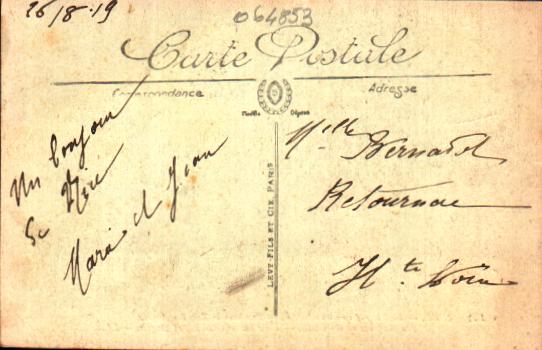 26/8-19
064853
Carte Postale
Correspondance
Adresse
Modèle Déposé
Un bonjour
de
Marie et Jean
LEVY FILS ET CIE, PARIS
Melle Bernadet
Retournac
Hte Loire